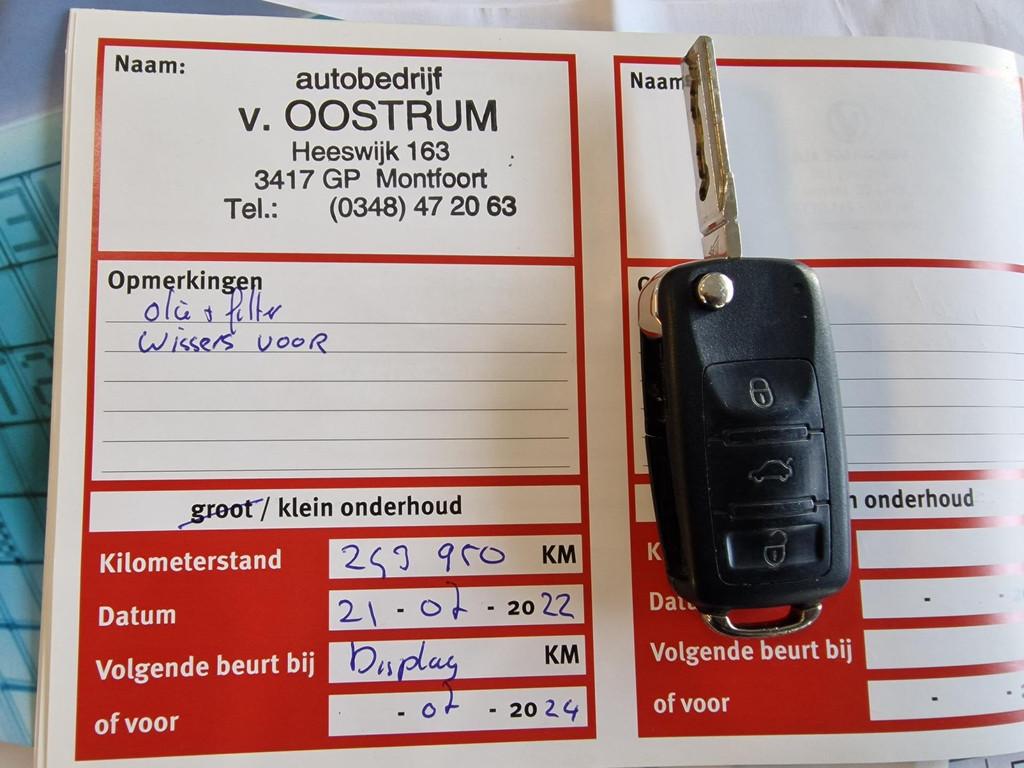 Naam:
autobedrijf
v. OOSTRUM
Heeswijk 163
3417 GP Montfoort
Tel.: (0348) 47 20 63
Opmerkingen
olie + filter
wissers VOOR
groot / klein onderhoud
Kilometerstand 249 950 KM
Datum 21 - 07 - 2022
Volgende beurt bij Display KM
of voor - 07 - 2024
Naam
onderhoud
Volgende beurt bij
of voor - -